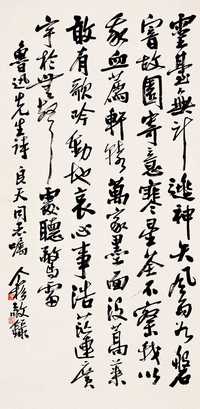 靈臺無計逃神矢風雨如磐
闇故園寄意寒星荃不察我以
我血薦軒轅萬家墨面沒蒿萊
敢有歌吟動地哀心事浩茫連廣
宇於無聲處聽驚雷
魯迅先生詩良天同志囑个簃敬錄